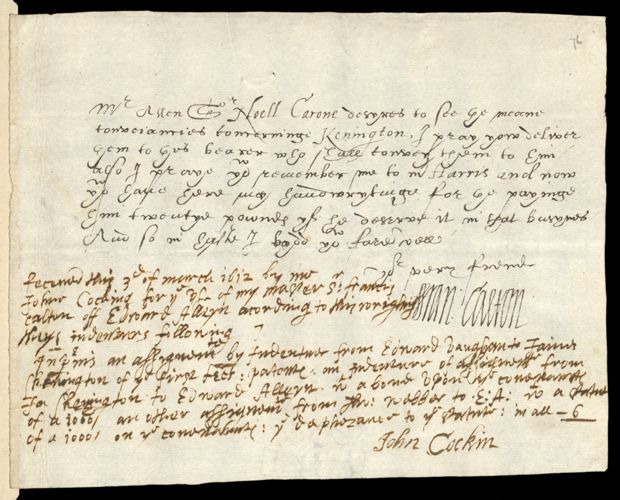 76
Mr Allen Sr Noell Carone desyres to see ye meane
conveiances concerninge Kenington, I pray yow deliver
them to yis bearer who shall convey them to him
also I praye yo remember me to mr Harris and now
yo have here my handwrytinge for ye payinge
him twentye pownds yf he deserve it in that busynes
And so in haste I bydd yo farewell
yor very frend
Fran Calton
Receved this 3d of march 1612 by me
John Cocking for ye use of my master Sr francis
Calton of Edward Alleyn acording to this wrighting
theys indenturs following
Inprimis an assignment by Indenture from Edward Vaughan to James
of ye first lett. patents. an indenture of assignment from
Ja to Edward Alleyn wt a bond upon ye covenants
of a 1000l an other assignment from Tho: Webber to E: A: wt a statut
of a 1000l on ye covenants: ye dapherance to ye statute: in all - 6
John Cockin